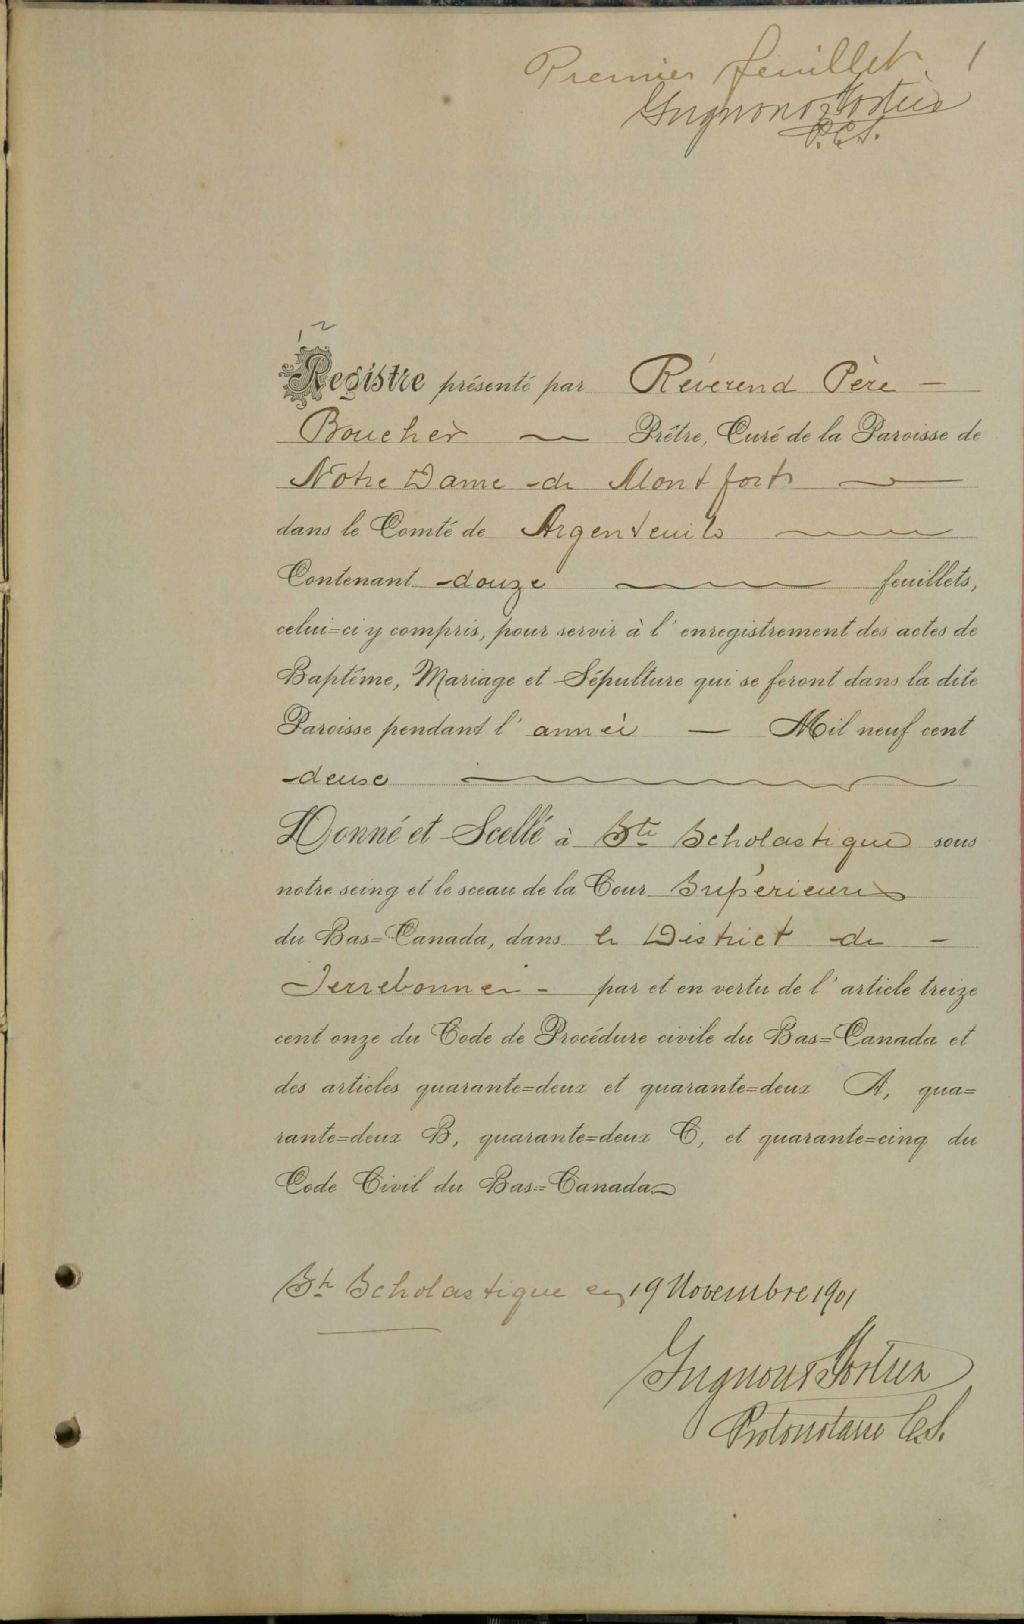 Premier feuillet. 1
Grignon & Fortier
P. C. S.
Registre présenté par Révérend Père -
Boucher Prêtre, Curé de la Paroisse de
Notre Dame de Montfort
dans le Comté de Argenteuil
Contenant douze feuillets,
celui=ci y compris, pour servir à l' enregistrement des actes de
Baptême, Mariage et Sépulture qui se feront dans la dite
Paroisse pendant l' année - Mil neuf cent
deux
Donné et Scellé à Ste Scholastique sous
notre seing et le sceau de la Cour Supérieure
du Bas=Canada, dans le District de -
Terrebonne - par et en vertu de l' article treize
cent onze du Code de Procédure civile du Bas=Canada et
des articles quarante=deux et quarante=deux A, qua=
rante=deux B, quarante=deux C, et quarante=cinq du
Code Civil du Bas=Canada
Ste Scholastique ce 19 Novembre 1901
Grignon & Fortier
Protonotaire C.S.